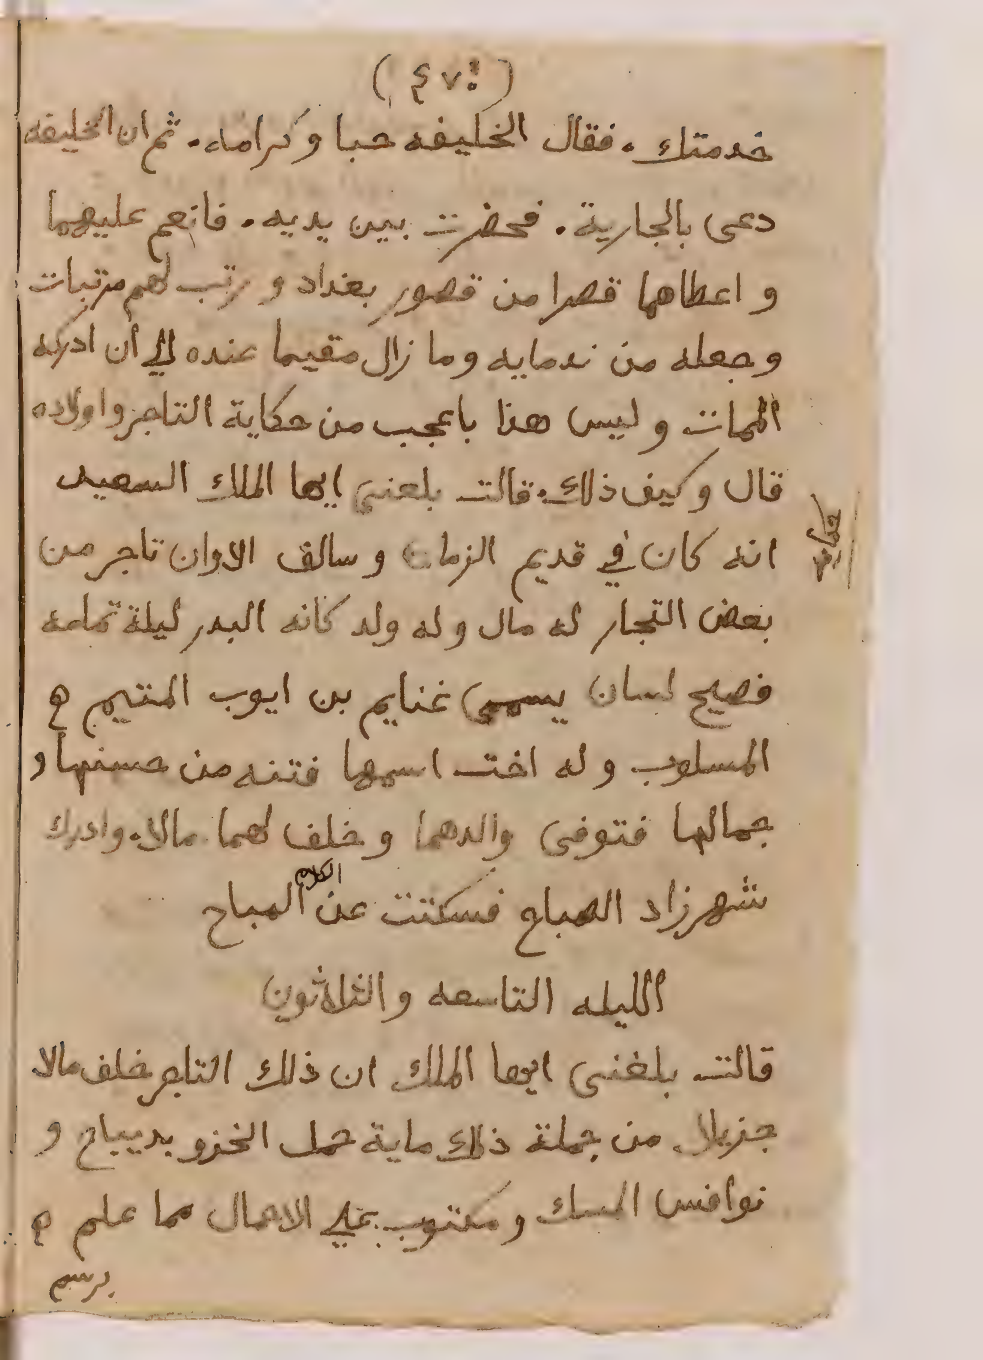 خدمتك. فقال الخليفه حبا وكرامه. ثم ان الخليفه
دعى بالجارية. فحضرت بين يديه. فانعم عليهما
و اعطاهما قصرا من قصور بغداد و رتب لهم مرتبات
وجعله من ندمايه وما زال مقيما عنده الي أن ادركه
الممات وليس هذا باعجب من حكاية التاجر واولاده
قال وكيف ذلك. قالت بلغني ايها الملك السعيد
انه كان في قديم الزمان و سالف الاوان تاجر من
بعض التجار له مال وله ولد كانه البدر ليلة تمامه
فصيح لسان يسمى غنايم بن ايوب المتيم
المسلوب وله اخت اسمها فتنه من حسنها و
جمالها فتوفى والدهما و خلف لهما مالا. وادرك
شهرزاد الصباح فسكتت عن الكلام المباح
الليله التاسعه والثلاثون
قالت بلغنى ايها الملك ان ذلك التاجر خلف مالا
جزيلا من جملة ذلك ماية حمل الخزو بديباج و
نوافس المسك ومكتوب علي الاحمال مما علم
برسم